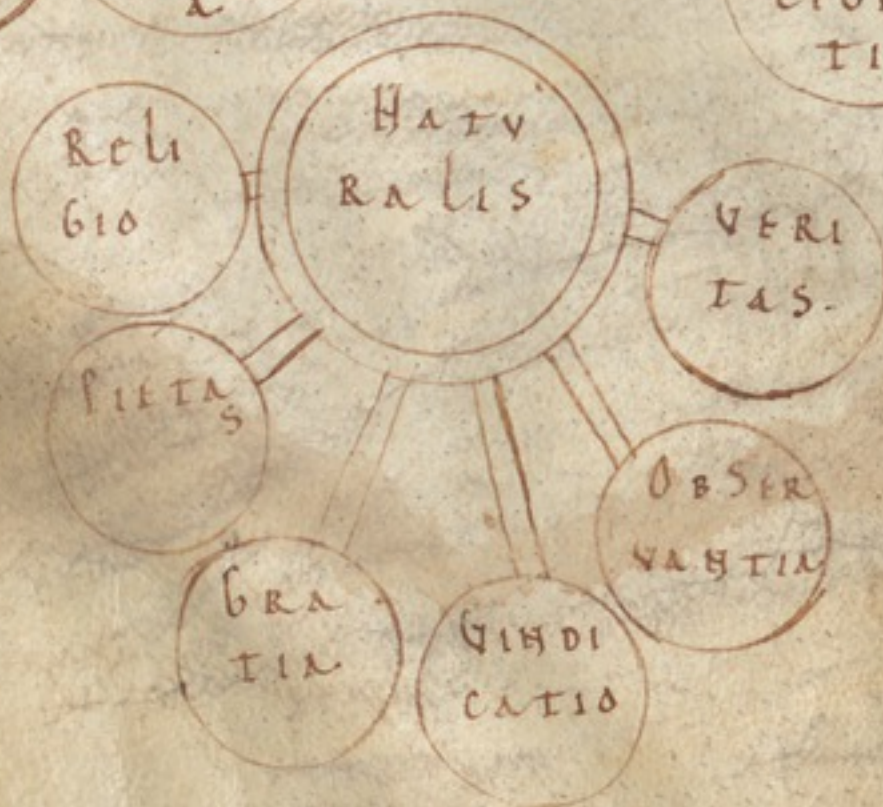 NATV
RALIS
RELI
GIO
VERI
TAS.
PIETA
S
OBSER
VANTIA
GRA
TIA
VINDI
CATIO
TI